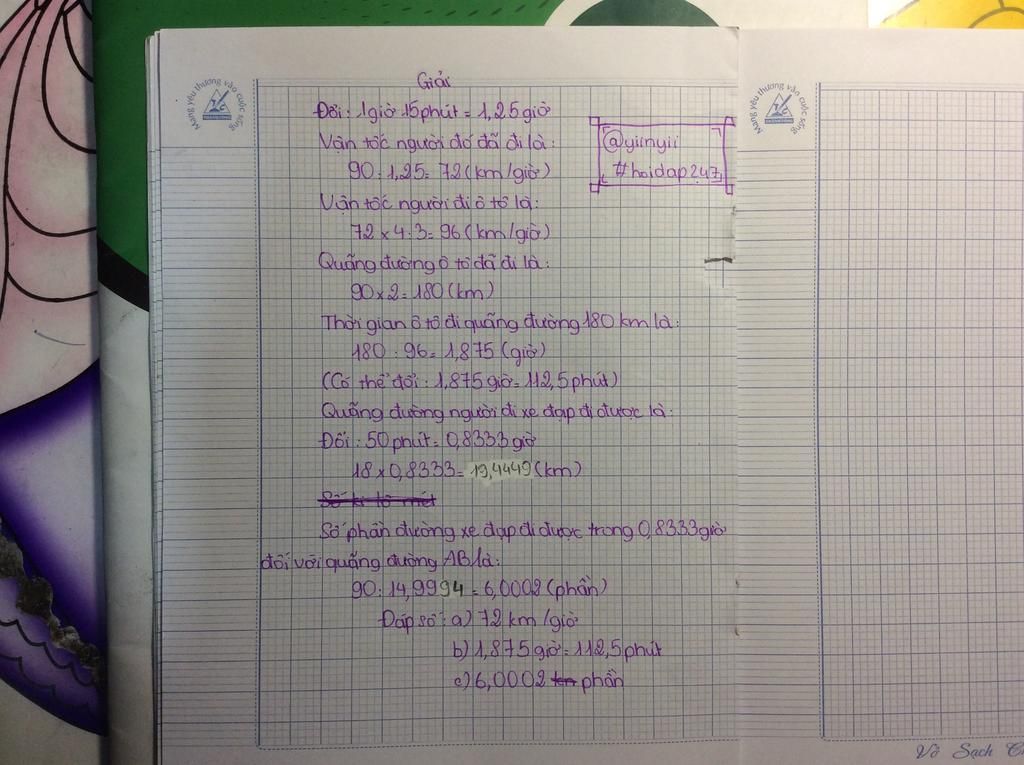 Mang yêu thương vào cuộc sống
Mang yêu thương vào cuộc sống
Giải
Đổi: 1giờ 15phút = 1,25giờ
Vận tốc người đó đã đi là:
90 : 1,25 = 72 (km/giờ)
@yiinyii
#hoidap247
Vận tốc người đi ô tô là:
72 x 4 : 3 = 96 (km/giờ)
Quãng đường ô tô đã đi là:
90 x 2 = 180 (km)
Thời gian ô tô đi quãng đường 180 km là:
180 : 96 = 1,875 (giờ)
(Có thể đổi: 1,875 giờ = 112,5 phút)
Quãng đường người đi xe đạp đi được là:
Đổi: 50 phút = 0,8333 giờ
18 x 0,8333 = 19,4449 (km)
Số ki lô mét
Số phần đường xe đạp đi được trong 0,8333 giờ
đối với quãng đường AB là:
90 : 14,9994 = 6,0002 (phần)
Đáp số: a) 72 km/giờ
b) 1,875 giờ = 112,5 phút
c) 6,0002 km phần
Vở Sạch